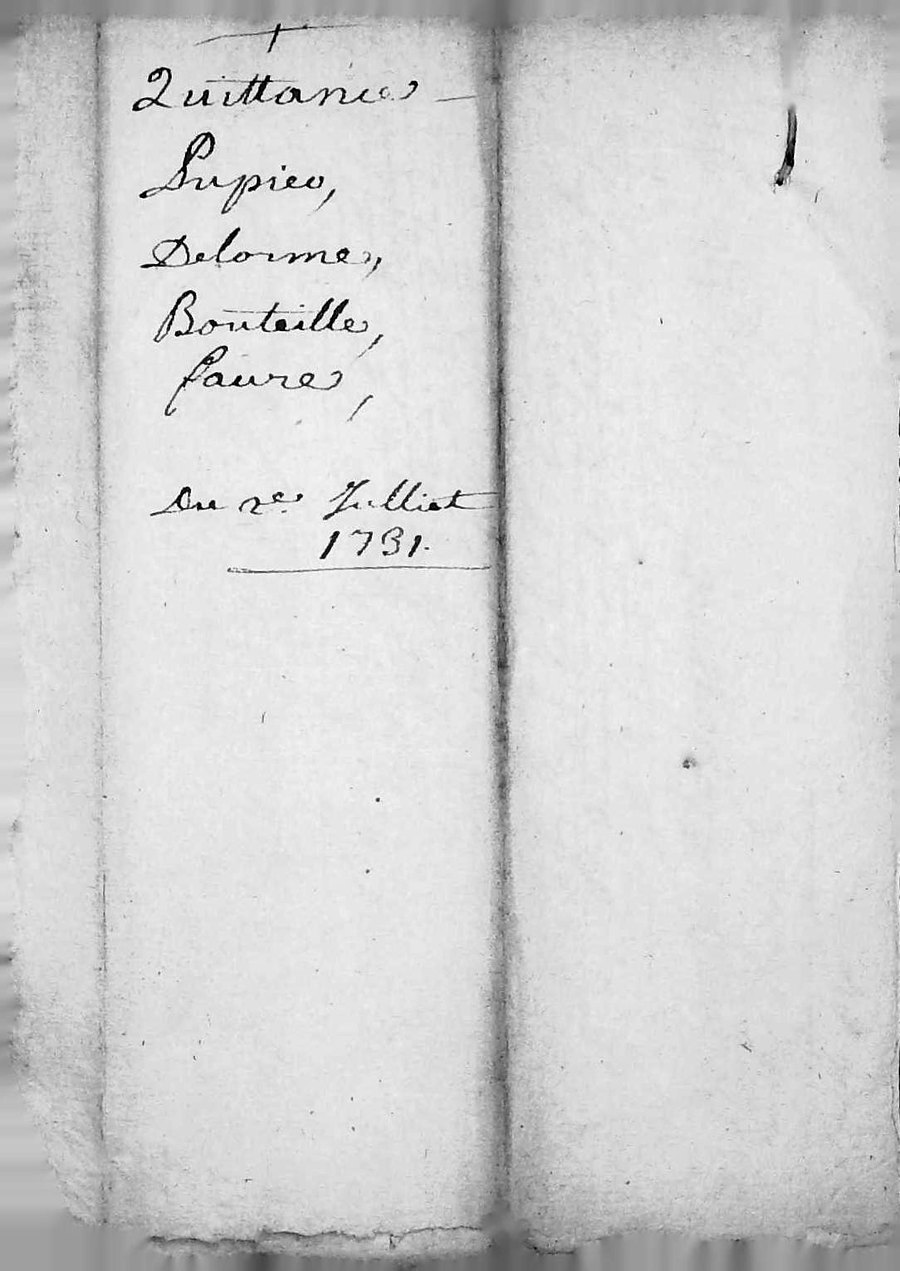 Quittance
Lupien,
Delorme,
Bouteille,
faure,
Du 2e. Julliet
1731.